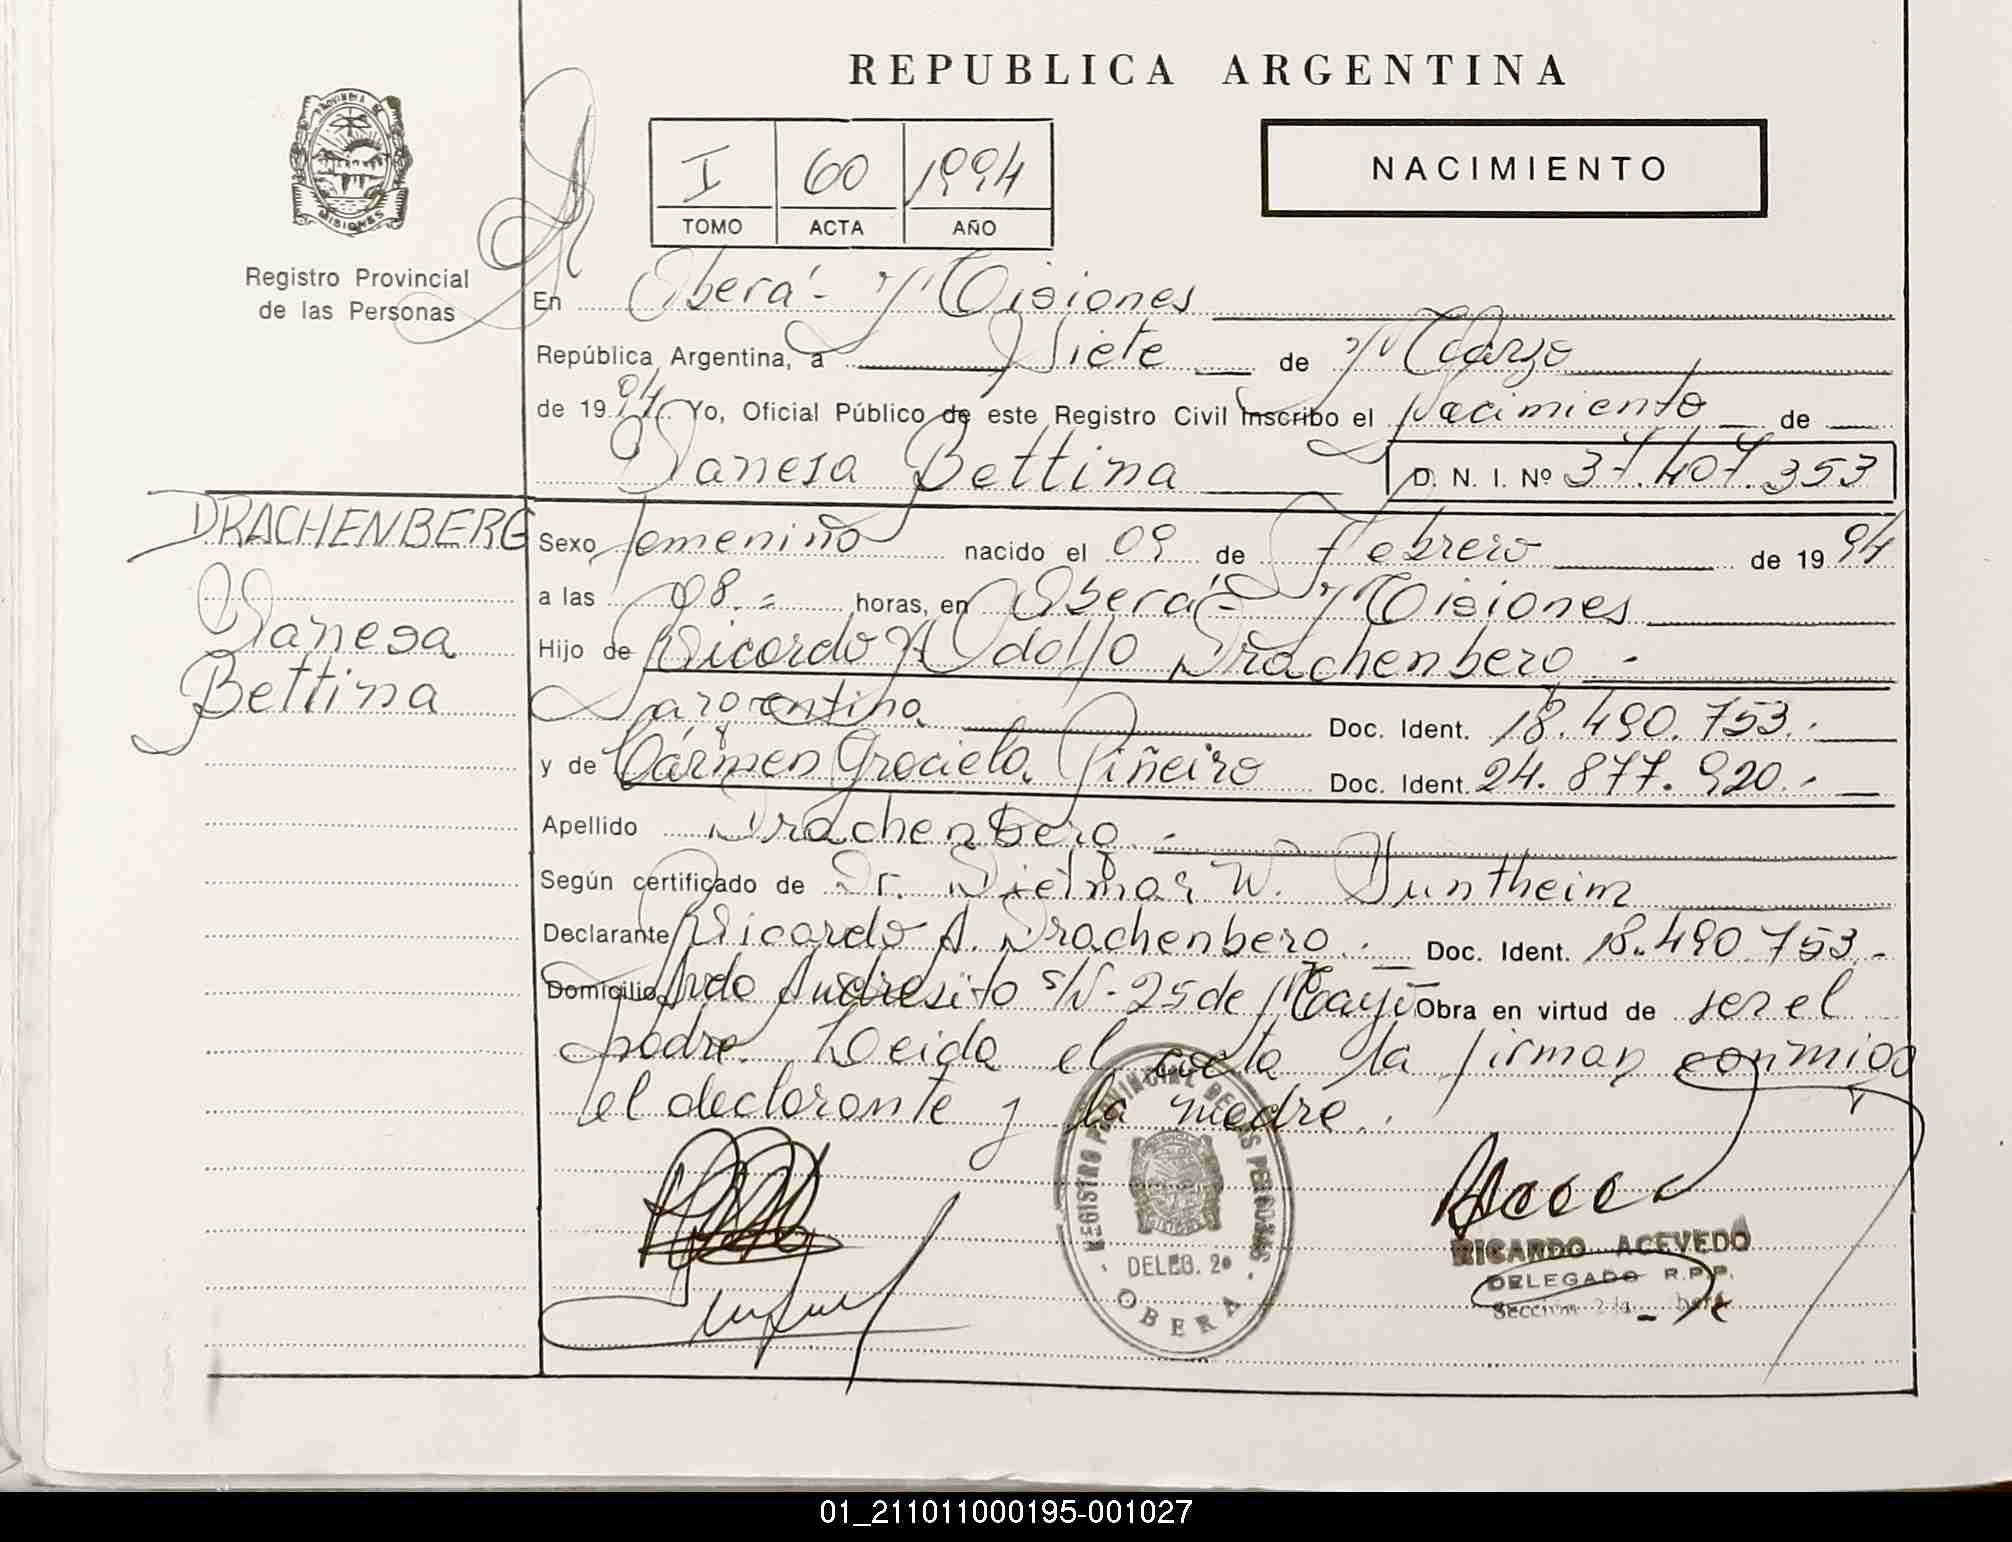 REPUBLICA ARGENTINA
PROVINCIA DE
MISIONES
Registro Provincial
de las Personas
I 60 1994
TOMO ACTA AÑO
NACIMIENTO
En Oberá - Misiones
República Argentina, a Siete de Marzo
de 1994 Yo, Oficial Público de este Registro Civil Inscribo el Nacimiento de
Vanesa Bettina D. N. I. Nº 37.407.353
DRACHENBERG
Vanesa
Bettina
Sexo femenino nacido el 09 de Febrero de 1994
a las 08.- horas, en Oberá - Misiones
Hijo de Ricardo Adolfo Drachenberg.-
argentina Doc. Ident. 18.490.753.-
y de Carmen Graciela Piñeiro Doc. Ident. 24.877.920.-
Apellido Drachenberg.-
Según certificado de Dr. Dietmar W. Duntheim
Declarante Ricardo A. Drachenberg.- Doc. Ident. 18.490.753.-
Domicilio Avda Andresito s/N - 25 de Mayo Obra en virtud de ser el
padre. Leida el acta la firman conmigo
el declarante y la madre.
REGISTRO PROVINCIAL DE LAS PERSONAS
DELEG. 2º
OBERA
RICARDO ACEVEDO
DELEGADO R.P.P.
Sección 2da
01_211011000195-001027